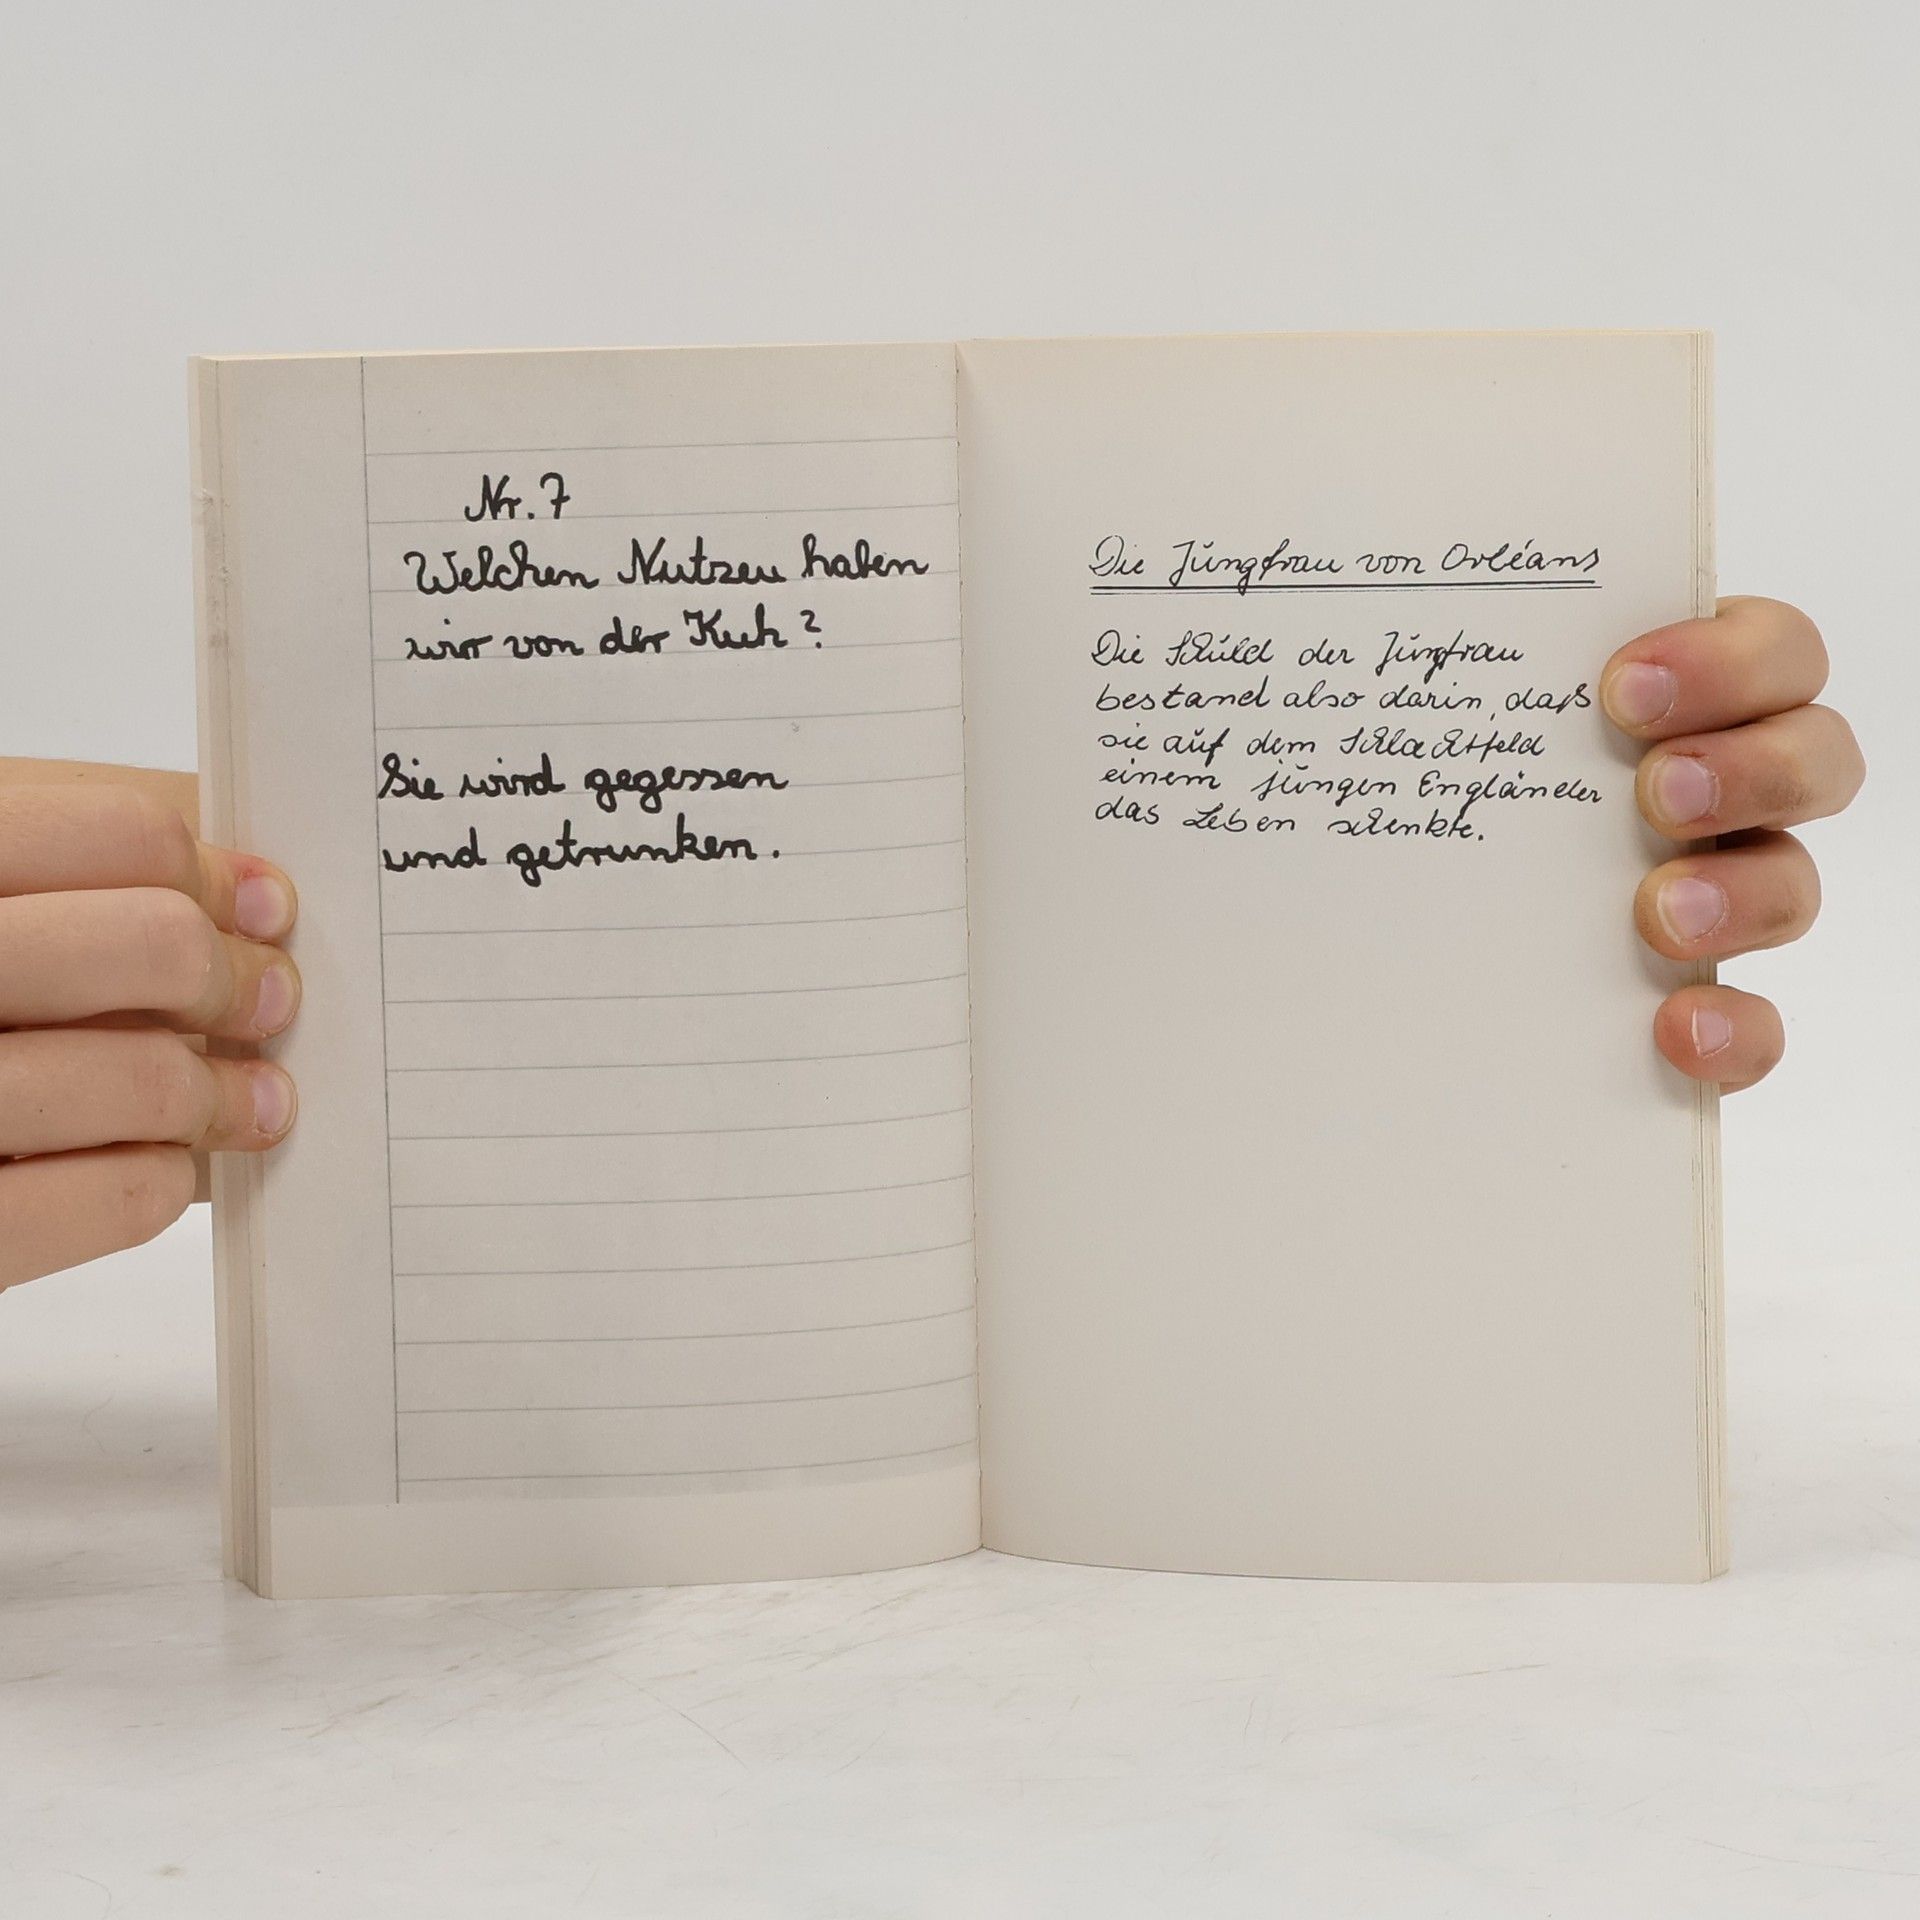 Nr. 7
Welchen Nutzen haben
wir von der Kuh?
Sie wird gegessen
und getrunken.
Die Jungfrau von Orléans
Die Schuld der Jungfrau
bestand also darin, daß
sie auf dem Schlachtfeld
einem jungen Engländer
das Leben schenkte.